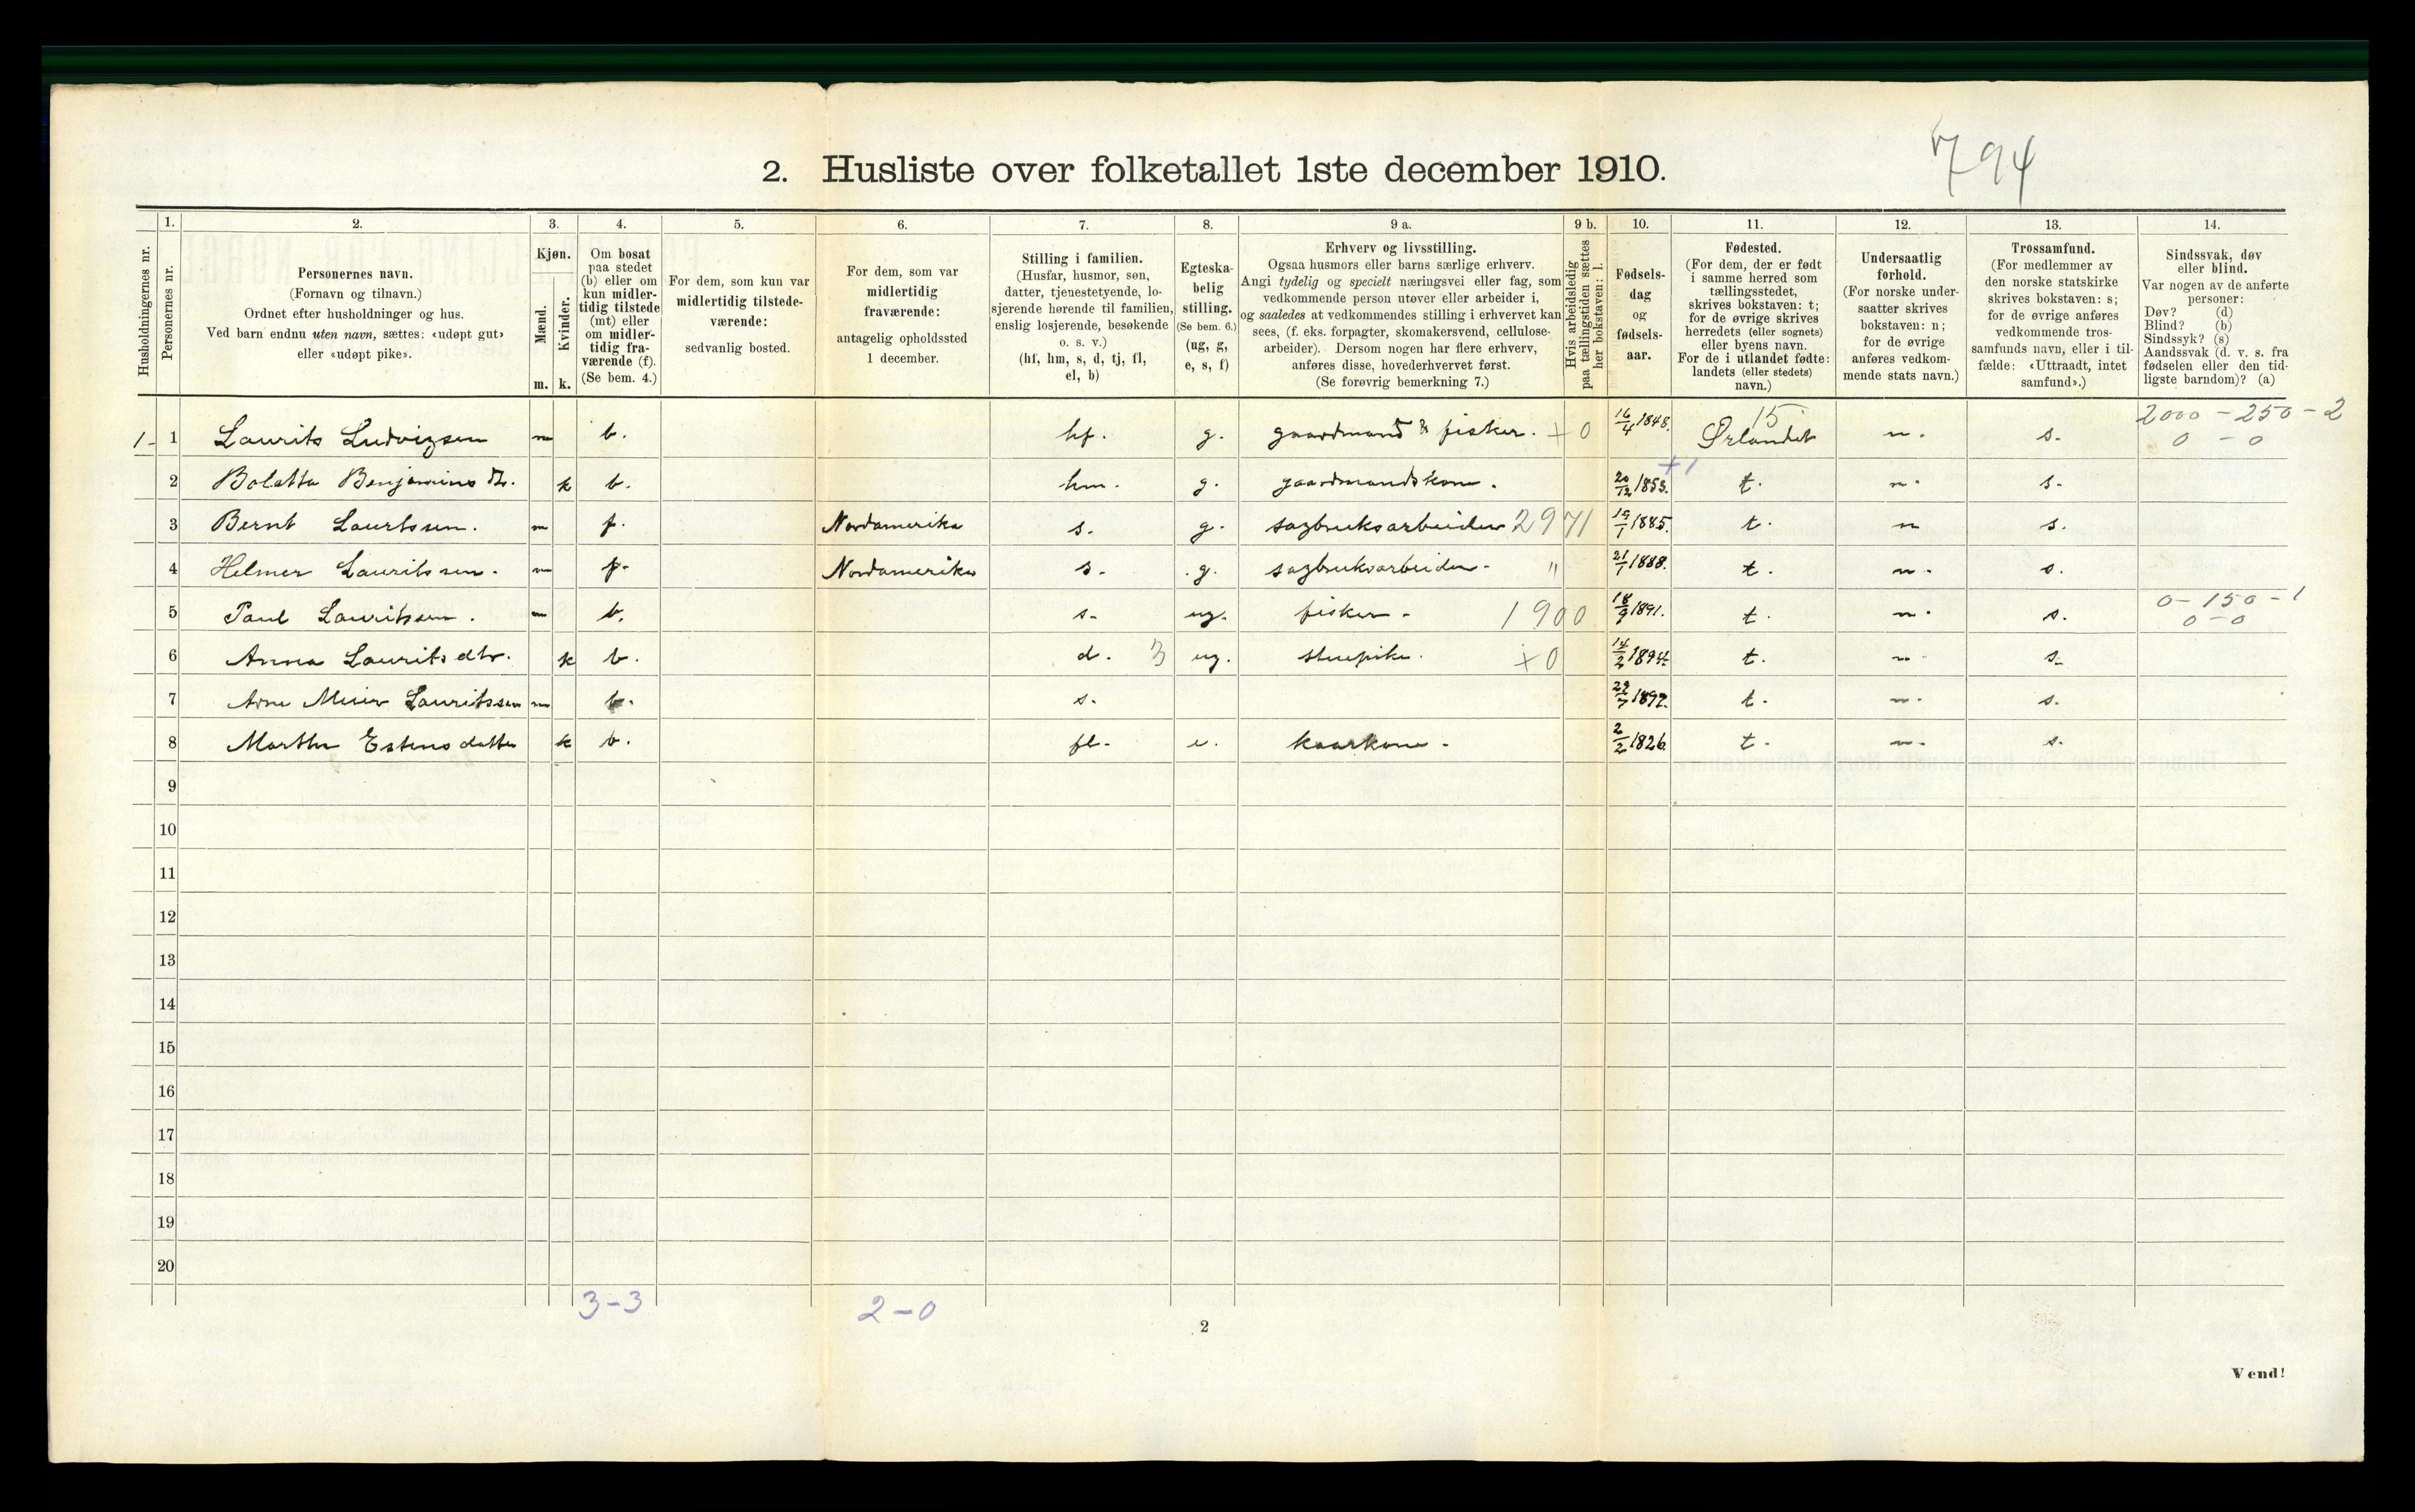 794
2. Husliste over folketallet 1ste december 1910.
Husholdningernes nr.
1. Personernes nr.
2. Personernes navn.
(Fornavn og tilnavn.)
Ordnet efter husholdninger og hus.
Ved barn endnu uten navn, sættes: «udøpt gut»
eller «udøpt pike».
3. Kjøn.
Mænd. m.
Kvinder. k.
4. Om bosat
paa stedet
(b) eller om
kun midler-
tidig tilstede
(mt) eller
om midler-
tidig fra-
værende (f).
(Se bem. 4.)
5. For dem, som kun var
midlertidig tilstede-
værende:
sedvanlig bosted.
6. For dem, som var
midlertidig
fraværende:
antagelig opholdssted
1 december.
7. Stilling i familien.
(Husfar, husmor, søn,
datter, tjenestetyende, lo-
sjerende hørende til familien,
enslig losjerende, besøkende
o. s. v.)
(hf, hm, s, d, tj, fl,
el, b)
8. Egteska-
belig
stilling.
(Se bem. 6.)
(ug, g,
e, s, f)
9 a. Erhverv og livsstilling.
Ogsaa husmors eller barns særlige erhverv.
Angi tydelig og specielt næringsvei eller fag, som
vedkommende person utøver eller arbeider i,
og saaledes at vedkommendes stilling i erhvervet kan
sees, (f. eks. forpagter, skomakersvend, cellulose-
arbeider). Dersom nogen har flere erhverv,
anføres disse, hovederhvervet først.
(Se forøvrig bemerkning 7.)
9 b. Hvis arbeidsledig
paa tællingstiden sættes
her bokstaven: l.
10. Fødsels-
dag
og
fødsels-
aar.
11. Fødested.
(For dem, der er født
i samme herred som
tællingsstedet,
skrives bokstaven: t;
for de øvrige skrives
herredets (eller sognets)
eller byens navn.
For de i utlandet fødte:
landets (eller stedets)
navn.)
12. Undersaatlig
forhold.
(For norske under-
saatter skrives
bokstaven: n;
for de øvrige
anføres vedkom-
mende stats navn.)
13. Trossamfund.
(For medlemmer av
den norske statskirke
skrives bokstaven: s;
for de øvrige anføres
vedkommende tros-
samfunds navn, eller i til-
fælde: «Uttraadt, intet
samfund».)
14. Sindssvak, døv
eller blind.
Var nogen av de anførte
personer:
Døv? (d)
Blind? (b)
Sindssyk? (s)
Aandssvak (d. v. s. fra
fødselen eller den tid-
ligste barndom)? (a)
15 2000 - 250 - 2
1- 1 Laurits Ludvigsen m b. hf. g. gaardmand & fisker. +0 16/4 1848. Ørlandet n. s. 0 - 0
+1
2 Boletta Benjamins dtr. k b. hm. g. gaardmandskone. 20/12 1853. t. n. s.
3 Bernt Lauritssen. m f. Nordamerika s. g. sagbruksarbeider 2971 19/1 1885. t. n s.
4 Helmer Lauritssen. m f. Nordamerika s. g. sagbruksarbeider. " 21/1 1888. t. n. s.
0 - 150 - 1
5 Paul Lauritssen. m b. s. ug. fisker. 1900 18/9 1891. t. n. s. 0 - 0
6 Anna Laurits dtr. k b. d. 3 ug. stuepike. +0 14/2 1894. t. n. s.
7 Arne Meier Lauritssen m b. s. 22/7 1897. t. n. s.
8 Martha Estensdatter k b. fl. e. kaarkone. 2/2 1826. t. n. s.
9
10
11
12
13
14
15
16
17
18
19
20
3-3 2-0
2
Vend!